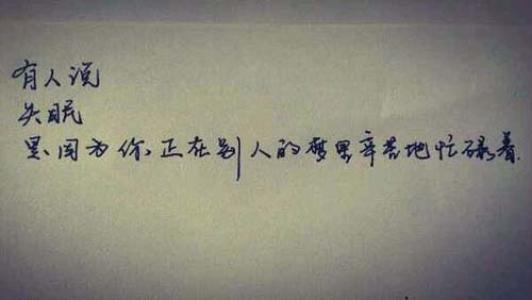 有人说
失眠
是因为你正在别人的梦里辛苦地忙碌着